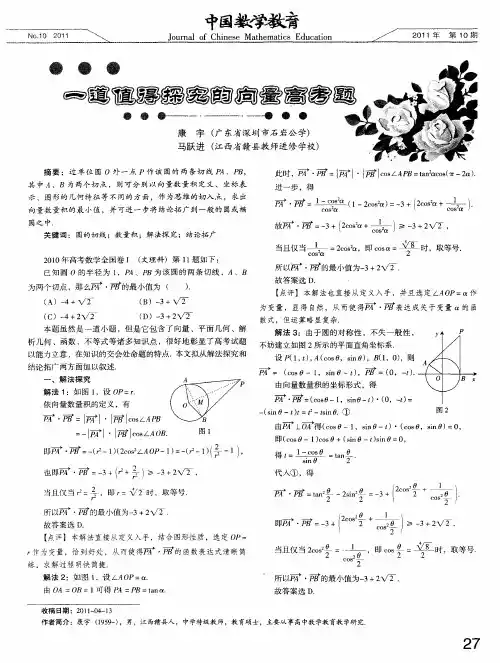 No.10 2011
中国数学教育
Journal of Chinese Mathematics Education
2011年 第10期
一道值得探究的向量高考题
康 宇（广东省深圳市石岩公学）
马跃进（江西省赣县教师进修学校）
摘要：过单位圆 O 外一点 P 作该圆的两条切线 PA、PB，
其中 A、B 为两个切点，则可分别以向量数量积定义、坐标表
示、图形的几何特征等不同的方面，作为思维的切入点，求出
向量数量积的最小值，并可进一步将结论拓广到一般的圆或椭
圆之中.
关键词：圆的切线；数量积；解法探究；结论拓广
2010年高考数学全国卷Ⅰ（文理科）第 11 题如下：
已知圆 O 的半径为 1，PA、PB 为该圆的两条切线，A、B
为两个切点，那么PA·PB的最小值为（ ）.
(A) -4+√2 (B) -3+√2
(C) -4+2√2 (D) -3+2√2
本题虽然是一道小题，但是它包含了向量、平面几何、解
析几何、函数、不等式等诸多知识点，很好地彰显了高考试题
以能力立意，在知识的交会处命题的特点. 本文拟从解法探究和
结论拓广两方面加以叙述.
一、解法探究
解法 1：如图 1，设 OP=r.
依向量数量积的定义，有
PA·PB=|PA|·|PB|cos∠APB
=-|PA|·|PB|cos∠AOB.
A
O M P
B
图 1
即PA·PB=-(r²-1)(2cos²∠AOP-1)=-(r²-1)(2/r²-1),
也即PA·PB=-3+(r²+2/r²)≥-3+2√2,
当且仅当 r²=2/r²，即 r=∜2 时，取等号.
所以PA·PB的最小值为-3+2√2.
故答案选 D.
【点评】本解法直接从定义入手，结合图形性质，选定 OP=
r 作为变量，恰到好处，从而使得PA·PB的函数表达式清晰简
练，求解过程明快简捷.
解法 2：如图 1，设∠AOP=α.
由 OA=OB=1 可得 PA=PB=tanα.
此时，PA·PB=|PA|·|PB|cos∠APB=tan²αcos(π-2α).
进一步，得
PA·PB=(1-cos²α)/cos²α(1-2cos²α)=-3+(2cos²α+1/cos²α).
故PA·PB=-3+(2cos²α+1/cos²α)≥-3+2√2,
当且仅当1/cos²α=2cos²α，即 cosα=∜8/2时，取等号.
所以PA·PB的最小值为-3+2√2.
故答案选 D.
【点评】本解法也直接从定义入手，并且选定∠AOP=α 作
为变量，显得自然，从而使得PA·PB表达成关于变量 α 的函
数式，但运算略显复杂.
解法 3：由于圆的对称性，不失一般性，
不妨建立如图 2 所示的平面直角坐标系.
设 P(1, t), A(cosθ, sinθ), B(1, 0), 则
PA=(cosθ-1, sinθ-t), PB=(0, -t).
由向量数量积的坐标形式，得
PA·PB=(cosθ-1, sinθ-t)·(0, -t)=
-(sinθ-t)t=t²-tsinθ. ①
y P
A
O B x
图 2
由PA⊥OA得(cosθ-1, sinθ-t)·(cosθ, sinθ)=0,
即(cosθ-1)cosθ+(sinθ-t)sinθ=0,
得 t=(1-cosθ)/sinθ=tanθ/2.
代入①，得
PA·PB=tan²θ/2-2sin²θ/2=-3+(2cos²θ/2+1/cos²θ/2).
即PA·PB=-3+(2cos²θ/2+1/cos²θ/2)≥-3+2√2,
当且仅当 2cos²θ/2=1/cos²θ/2，即 cosθ/2=∜8/2时，取等号.
所以PA·PB的最小值为-3+2√2.
故答案选 D.
收稿日期：2011-04-13
作者简介：康宇（1959-），男，江西赣县人，中学特级教师，教育硕士，主要从事高中数学教育教学研究.
27